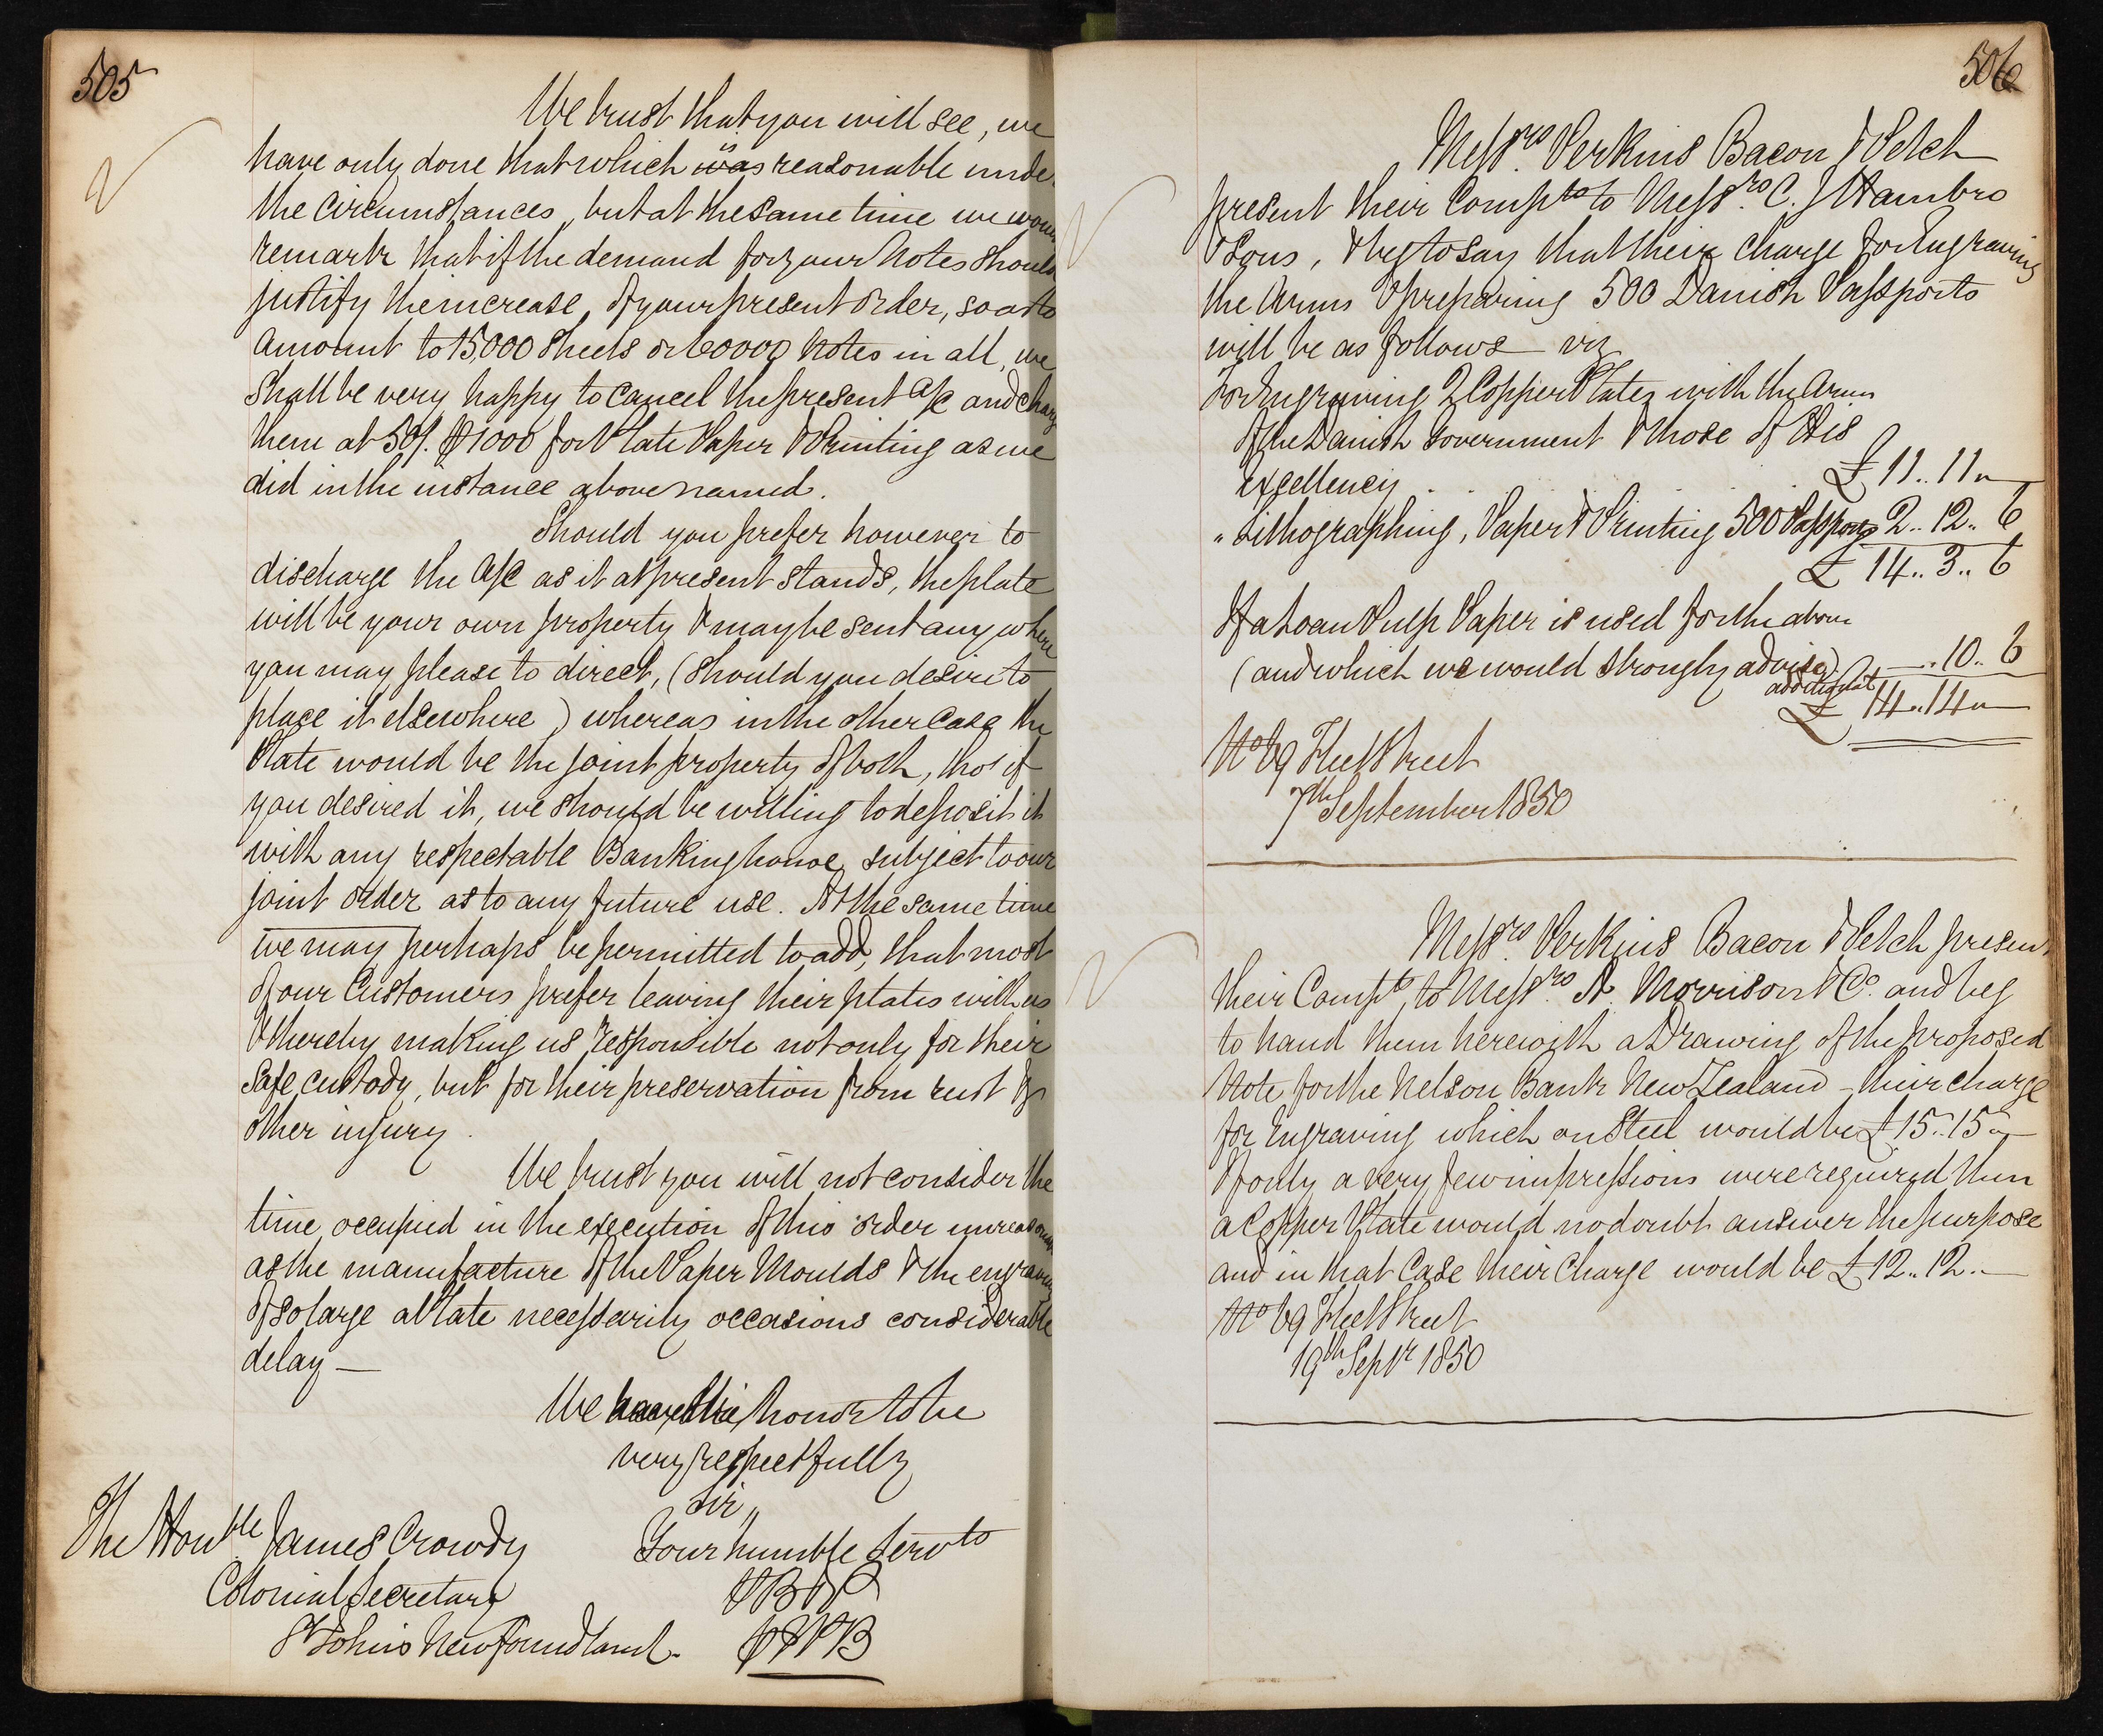 505
We trust that you will see, we
have only done that which is was reasonable unde
the circumstances, but at the same time we wou
remark that if the demand for your Notes should
justify the increase, of your present order, so as to
amount to 15,000 Sheets or 60000 Notes in all, we
Shall be very happy to cancel the present a/c and charg
them at 50/. p 1000 for Plate Paper & Printing as we
did in the instance above named.
Should you prefer however to
discharge the a/c as it at present stands, the plate
will be your own property & may be sent any where
you may please to direct, (should you desire to
place it elsewhere) whereas in the other Case the
Plate would be the joint property of both, tho' if
you desired it, we should be willing to deposit it
with any respectable Banking house, subject to our
joint order as to any future use. At the same time
we may perhaps be permitted to add, that most
of our Customers prefer leaving their plates with us
& thereby making us responsible not only for their
Safe Custody, but for their preservation from rust &
other injury.
We trust you will not consider the
time occupied in the execution of this order unreason
as the manufacture of the Paper Moulds & the engraving
of so large a Plate necessarily occasions considerable
delay —
We have the honor to be
very respectfully
Sir,,
The Honble James Crowdy
Your humble Servts
Colonial Secretary
PB&P
St Johns Newfoundland.
p
506
Messrs. Perkins Bacon & Petch
present their Compts to Messrs. C. J Hambro
& Sons, & beg to say that their charge for Engraving
the Arms & preparing 500 Danish Passports
will be as follows — viz
For Engraving 2 Copper Plates with the Arms
of the Danish Government & those of His
Excellency . . £ 11 .. 11 "—
" Lithographing, Paper & Printing 500 Passports 2 .. 12 .. 6
£ 14 .. 3 .. 6
If a Loan Pulp Paper is used for the above
(and which we would strongly advise) additional — .. 10 .. 6
£ 14 .. 14 "—
No 69 Fleet Street
7th September 1850
Messrs. Perkins Bacon & Petch presen
their Compts. to Messrs. A. Morrison & Co. and beg
to hand them herewith a Drawing of the proposed
Note for the Nelson Bank New Zealand — their charge
for Engraving which on Steel would be £ 15 .. 15 "—
If only a very few impressions were required then
a Copper Plate would no doubt answer the purpose
and in that Case their Charge would be £ 12 .. 12 .. —
No 69 Fleet Street
19th Septr 1850